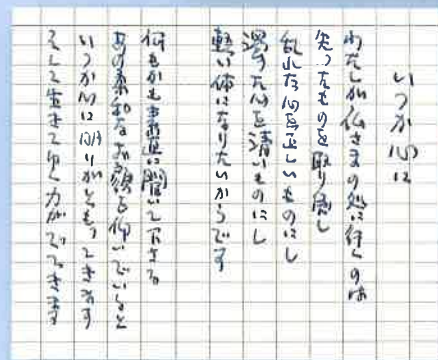 いつか心に
わたしが仏さまの処に行くのは
失ったものを取り戻し
乱れた心を正しいものにし
濁った心を清いものにし
軽い体になりたいからです
何もかも素直に聞いて下さる
あの柔和なお顔を仰いでいると
いつか心に明りがともってきます
そして生きてゆく力がでてきます